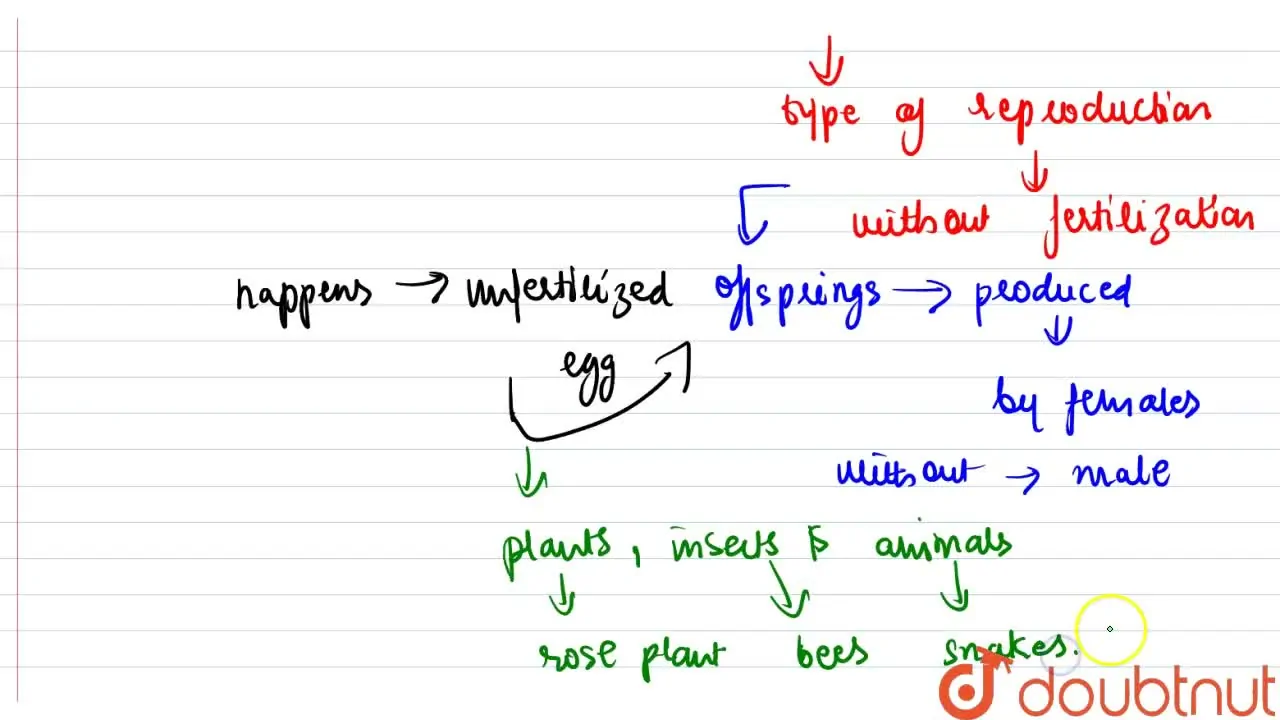 type of reproduction
without fertilization
happens → unfertilized offsprings → produced
egg
by females
without → male
plants, insects & animals
rose plant bees snakes.
doubtnut